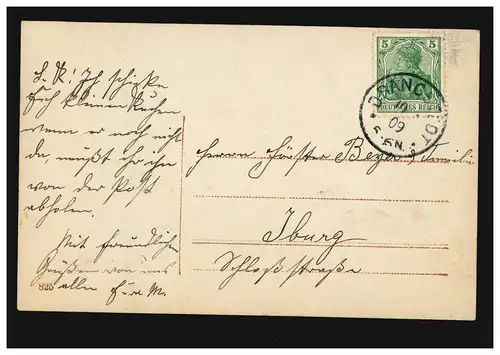 L. K! Ich schicke
Euch kleinen Kuchen
wenn er noch nicht
da, müßt ihr ihn
von der Post
abholen.
Mit freundlichen
Grüßen von uns
allen Eure M.
825
5 5
DEUTSCHES REICH
DRANG
09
5-6N.
Herrn Förster Beyer u. Familie
Iburg
Schloßstraße